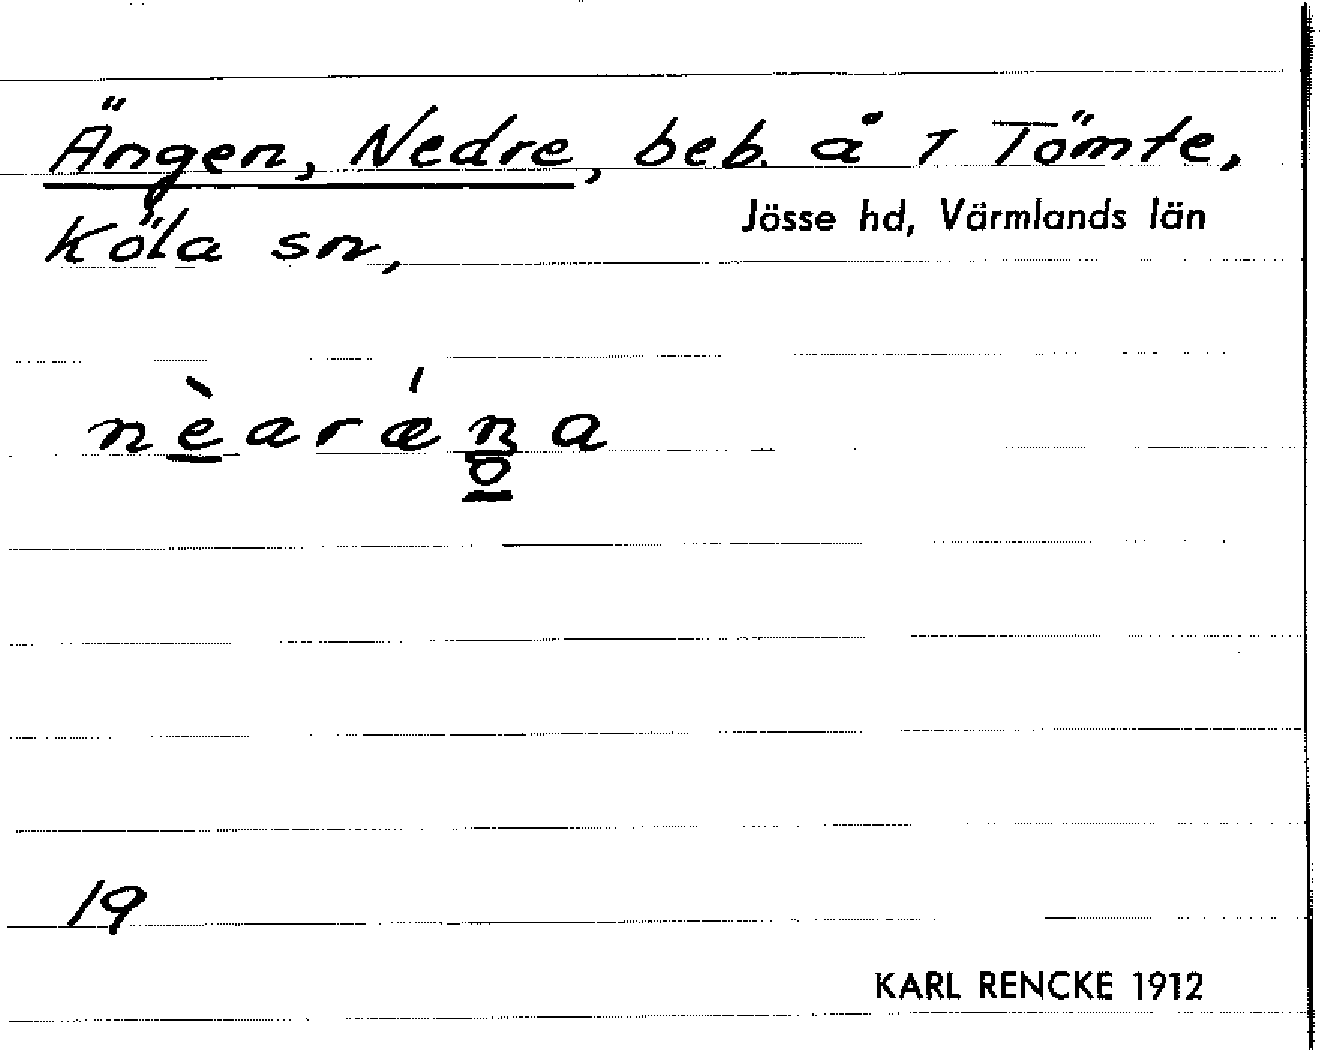 Ängen, Nedre, beb. å 1 Tömte,
Jösse hd, Värmlands län
Köla sn,
nèaráŋ̥a
19
KARL RENCKE 1912